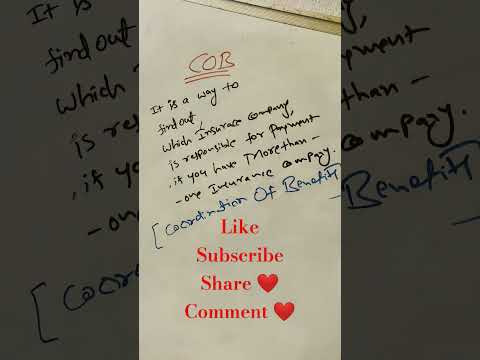 COB
It is a way to
find out,
which Insurace company,
is responsible for Payment
, if you have More than -
- one Insurance company.
[Coordination Of Benefits
Like
Subscribe
Share ❤️
Comment ❤️